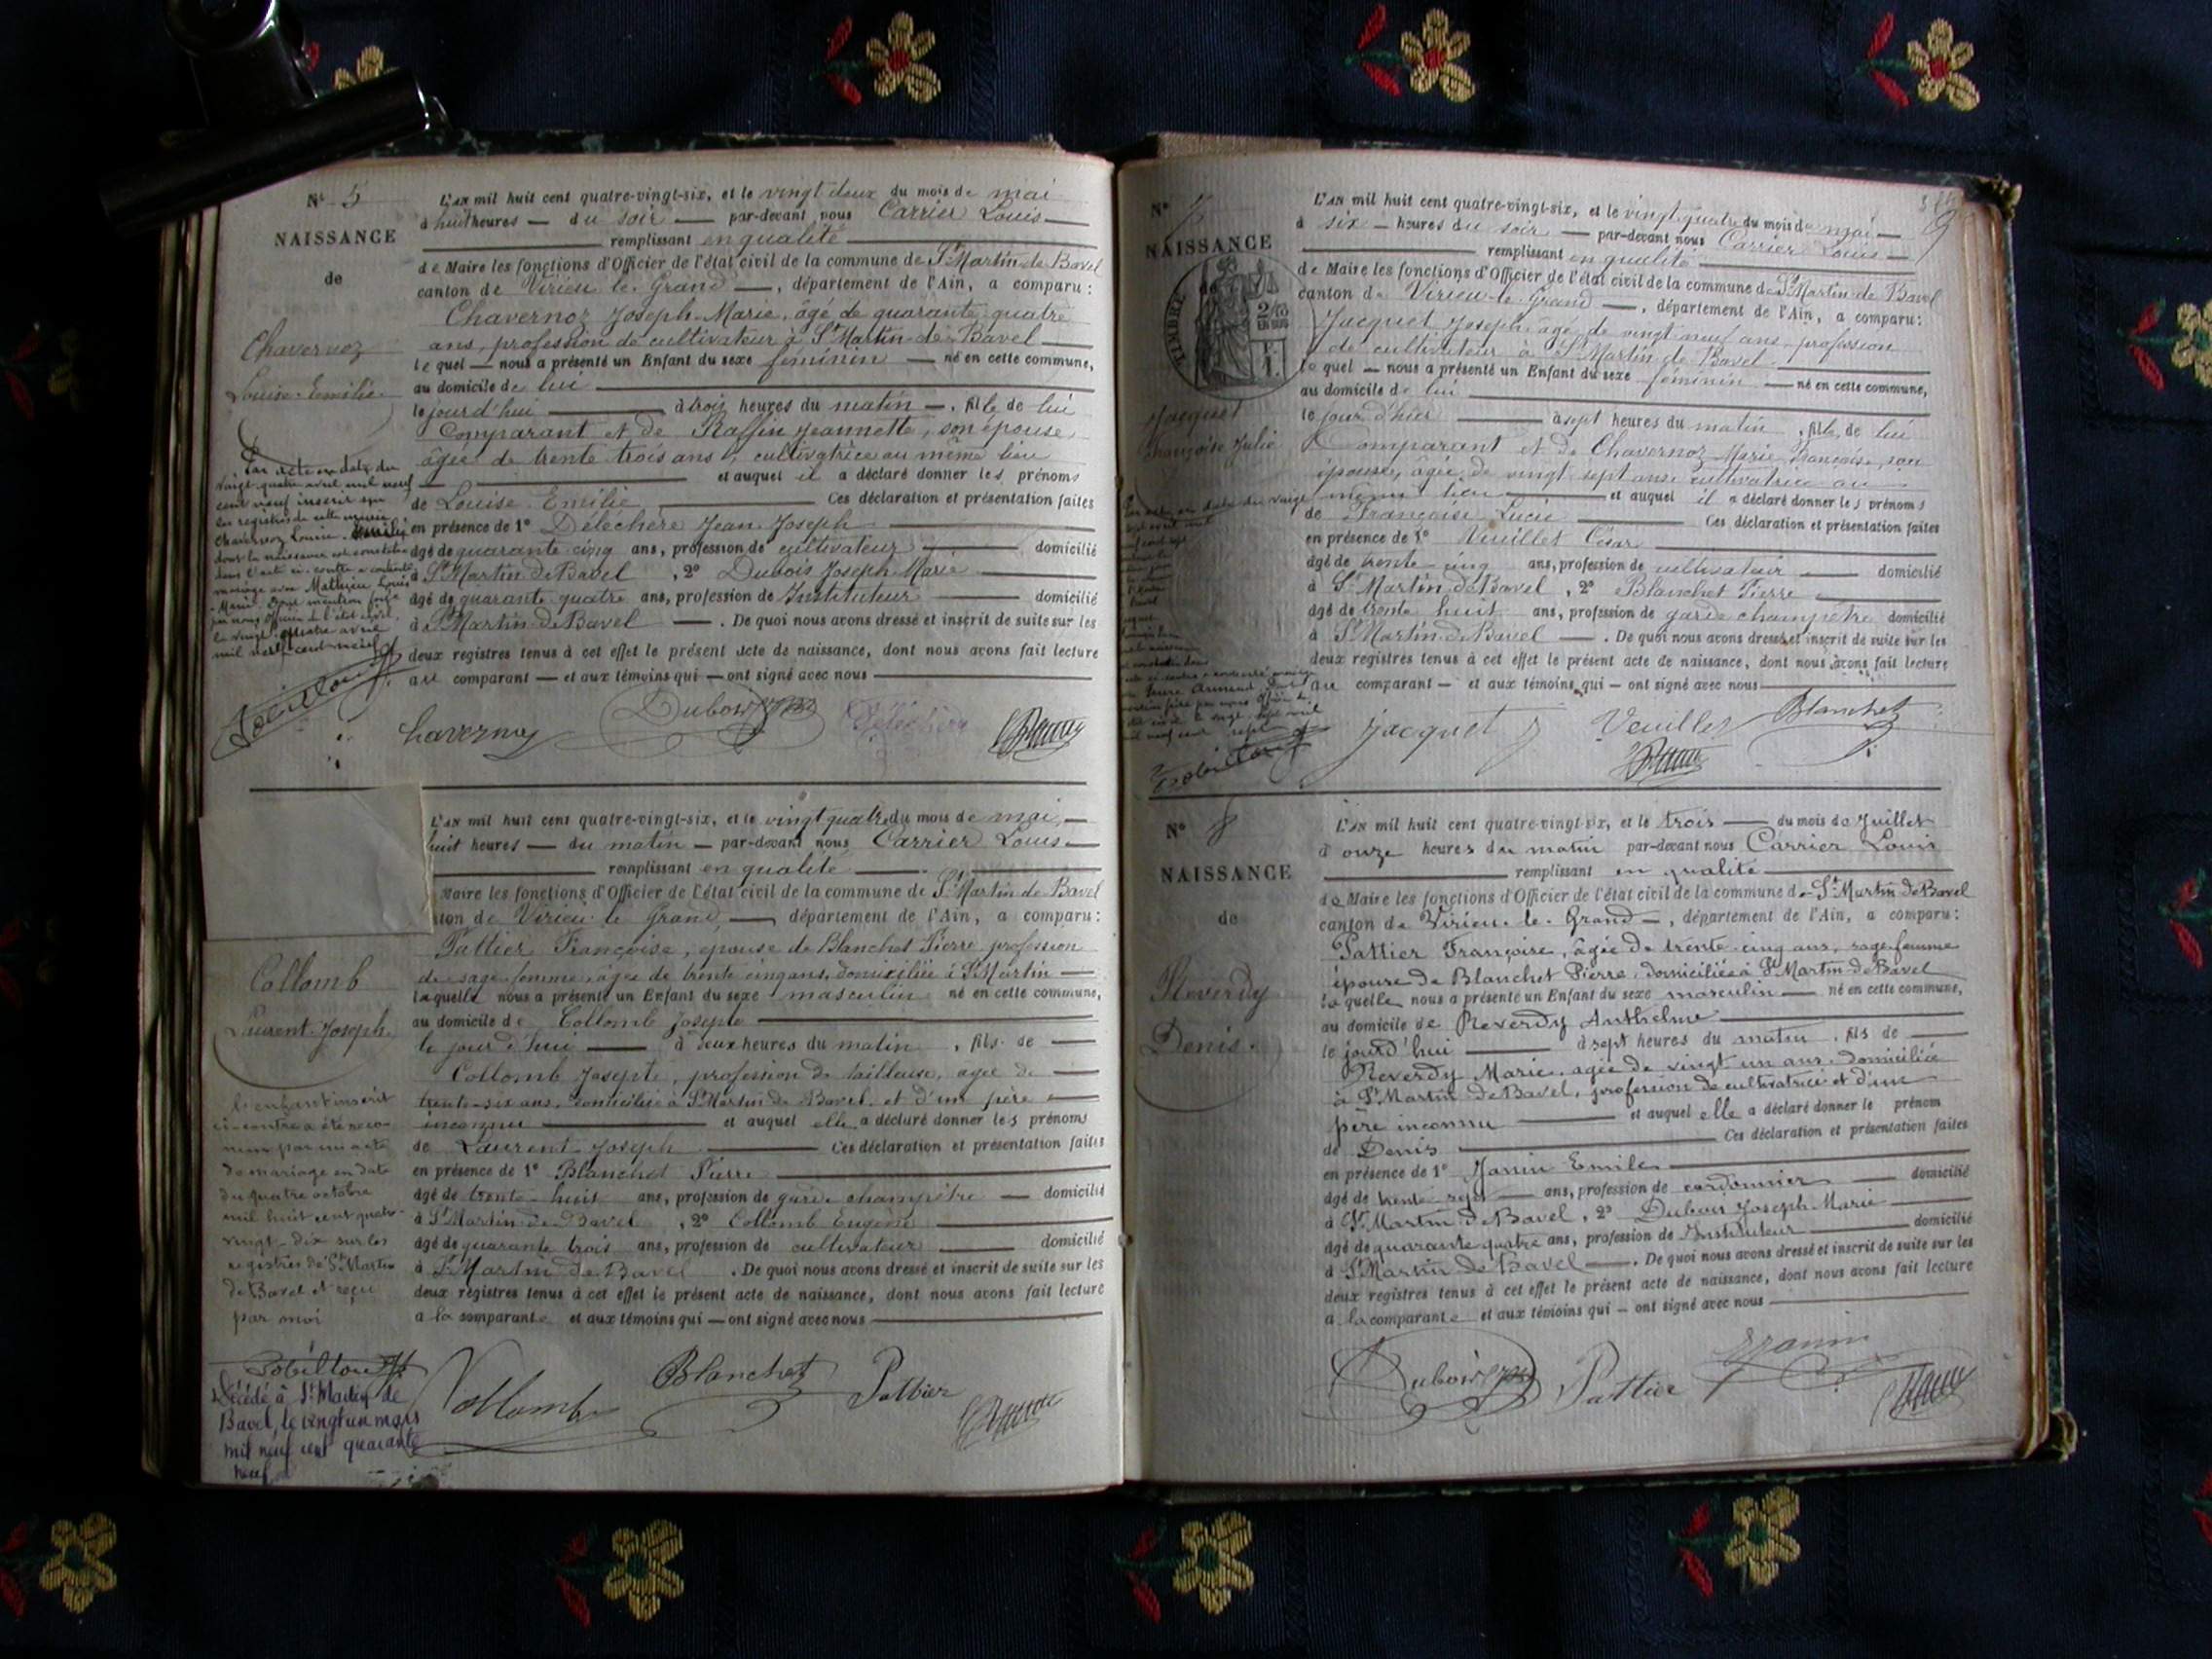 N° 5
NAISSANCE
de
Chavernoz
Louise Emilie
Par acte en date du
vingt-quatre avril mil neuf
cent neuf inscrit sur
les registres de cette mairie
Chavernoz Louise Emilie
dont la naissance est constatée
dans l'acte ci-contre a contracté
mariage avec Mathieu Louis
Marie. Pour mention faite
par nous officier de l'état civil
le vingt quatre avril
mil neuf cent neuf
L'AN mil huit cent quatre-vingt-six, et le vingt deux du mois de mai
à huit heures — du soir — par-devant nous Carrier Louis —
remplissant en qualité
de Maire les fonctions d'Officier de l'état civil de la commune de St Martin de Bavel
canton de Virieu le Grand —, département de l'Ain, a comparu :
Chavernoz Joseph Marie, âgé de quarante quatre
ans, profession de cultivateur à St Martin de Bavel —
lequel — nous a présenté un Enfant du sexe féminin — né en cette commune,
au domicile de lui
le jour d'hui — à trois heures du matin —, fille de lui
Comparant et de Raffin Jeannette, son épouse,
âgée de trente trois ans, cultivatrice au même lieu
et auquel il a déclaré donner les prénoms
de Louise Emilie — Ces déclaration et présentation faites
en présence de 1° Deléchère Jean Joseph
âgé de quarante cinq ans, profession de cultivateur — domicilié
à St Martin de Bavel, 2° Dubois Joseph Marie
âgé de quarante quatre ans, profession de Instituteur — domicilié
à St Martin de Bavel —. De quoi nous avons dressé et inscrit de suite sur les
deux registres tenus à cet effet le présent acte de naissance, dont nous avons fait lecture
au comparant — et aux témoins qui — ont signé avec nous
Chavernoz Dubois Deléchère
Collomb
Laurent Joseph
l'enfant inscrit
ci-contre a été recon-
nu par un acte
de mariage en date
du quatre octobre
mil huit cent quatre-
vingt-dix sur les
registres de St Martin
de Bavel et reçu
par moi
Décédé à St Martin de
Bavel, le vingt un mars
mil neuf cent quarante
neuf
L'AN mil huit cent quatre-vingt-six, et le vingt quatre du mois de mai —
huit heures — du matin — par-devant nous Carrier Louis —
remplissant en qualité
Maire les fonctions d'Officier de l'état civil de la commune de St Martin de Bavel
ton de Virieu le Grand —, département de l'Ain, a comparu :
Pattier Françoise, épouse de Blanchet Pierre profession
de sage femme, âgée de trente cinq ans, domiciliée à St Martin —
laquelle nous a présenté un Enfant du sexe masculin né en cette commune,
au domicile de Collomb Josepte
le jour d'hui — à deux heures du matin, fils de —
Collomb Josepte, profession de tailleuse, âgée de —
trente-six ans, domiciliée à St Martin de Bavel, et d'un père —
inconnu — et auquel elle a déclaré donner les prénoms
de Laurent Joseph — Ces déclaration et présentation faites
en présence de 1° Blanchet Pierre
âgé de trente-huit ans, profession de garde champêtre — domicilié
à St Martin de Bavel, 2° Collomb Eugène
âgé de quarante trois ans, profession de cultivateur — domicilié
à St Martin de Bavel. De quoi nous avons dressé et inscrit de suite sur les
deux registres tenus à cet effet le présent acte de naissance, dont nous avons fait lecture
a la comparante et aux témoins qui — ont signé avec nous
Collomb Blanchet Pattier
N° 7
NAISSANCE
Jacquet
Françoise Julie
L'AN mil huit cent quatre-vingt-six, et le vingt quatre du mois de mai —
à six — heures du soir — par-devant nous Carrier Louis —
remplissant en qualité
de Maire les fonctions d'Officier de l'état civil de la commune de St Martin de Bavel
canton de Virieu-le-Grand —, département de l'Ain, a comparu :
Jacquet Joseph, âgé de vingt-neuf ans, profession
de cultivateur à St Martin de Bavel
lequel — nous a présenté un Enfant du sexe féminin — né en cette commune,
au domicile de lui
le jour d'hier — à sept heures du matin, fille de lui
Comparant et de Chavernoz Marie Françoise, son
épouse, âgée de vingt sept ans cultivatrice au
même lieu — et auquel il a déclaré donner les prénoms
de Françoise Lucie — Ces déclaration et présentation faites
en présence de 1° Veuillet César
âgé de trente cinq ans, profession de cultivateur — domicilié
à St Martin de Bavel, 2° Blanchet Pierre
âgé de trente huit ans, profession de garde champêtre domicilié
à St Martin de Bavel —. De quoi nous avons dressé et inscrit de suite sur les
deux registres tenus à cet effet le présent acte de naissance, dont nous avons fait lecture
au comparant — et aux témoins qui — ont signé avec nous
Jacquet J Veuillet Blanchet
N° 8
NAISSANCE
de
Reverdy
Denis.
L'AN mil huit cent quatre-vingt-six, et le trois — du mois de Juillet
à onze heures du matin par-devant nous Carrier Louis
remplissant en qualité
de Maire les fonctions d'Officier de l'état civil de la commune de St Martin de Bavel
canton de Virieu-le-Grand —, département de l'Ain, a comparu :
Pattier Françoise, âgée de trente-cinq ans, sage-femme
épouse de Blanchet Pierre, domiciliée à St Martin de Bavel
laquelle nous a présenté un Enfant du sexe masculin — né en cette commune,
au domicile de Reverdy Anthelme
le jourd'hui — à sept heures du matin, fils de —
Reverdy Marie, agée de vingt un ans, domiciliée
à St Martin de Bavel, profession de cultivatrice et d'un
père inconnu — et auquel elle a déclaré donner le prénom
de Denis — Ces déclaration et présentation faites
en présence de 1° Janin Emile
âgé de trente sept — ans, profession de cordonnier — domicilié
à St Martin de Bavel, 2° Dubois Joseph-Marie
âgé de quarante quatre ans, profession de Instituteur — domicilié
à St Martin de Bavel —. De quoi nous avons dressé et inscrit de suite sur les
deux registres tenus à cet effet le présent acte de naissance, dont nous avons fait lecture
a la comparante et aux témoins qui — ont signé avec nous
Dubois Pattier E Janin